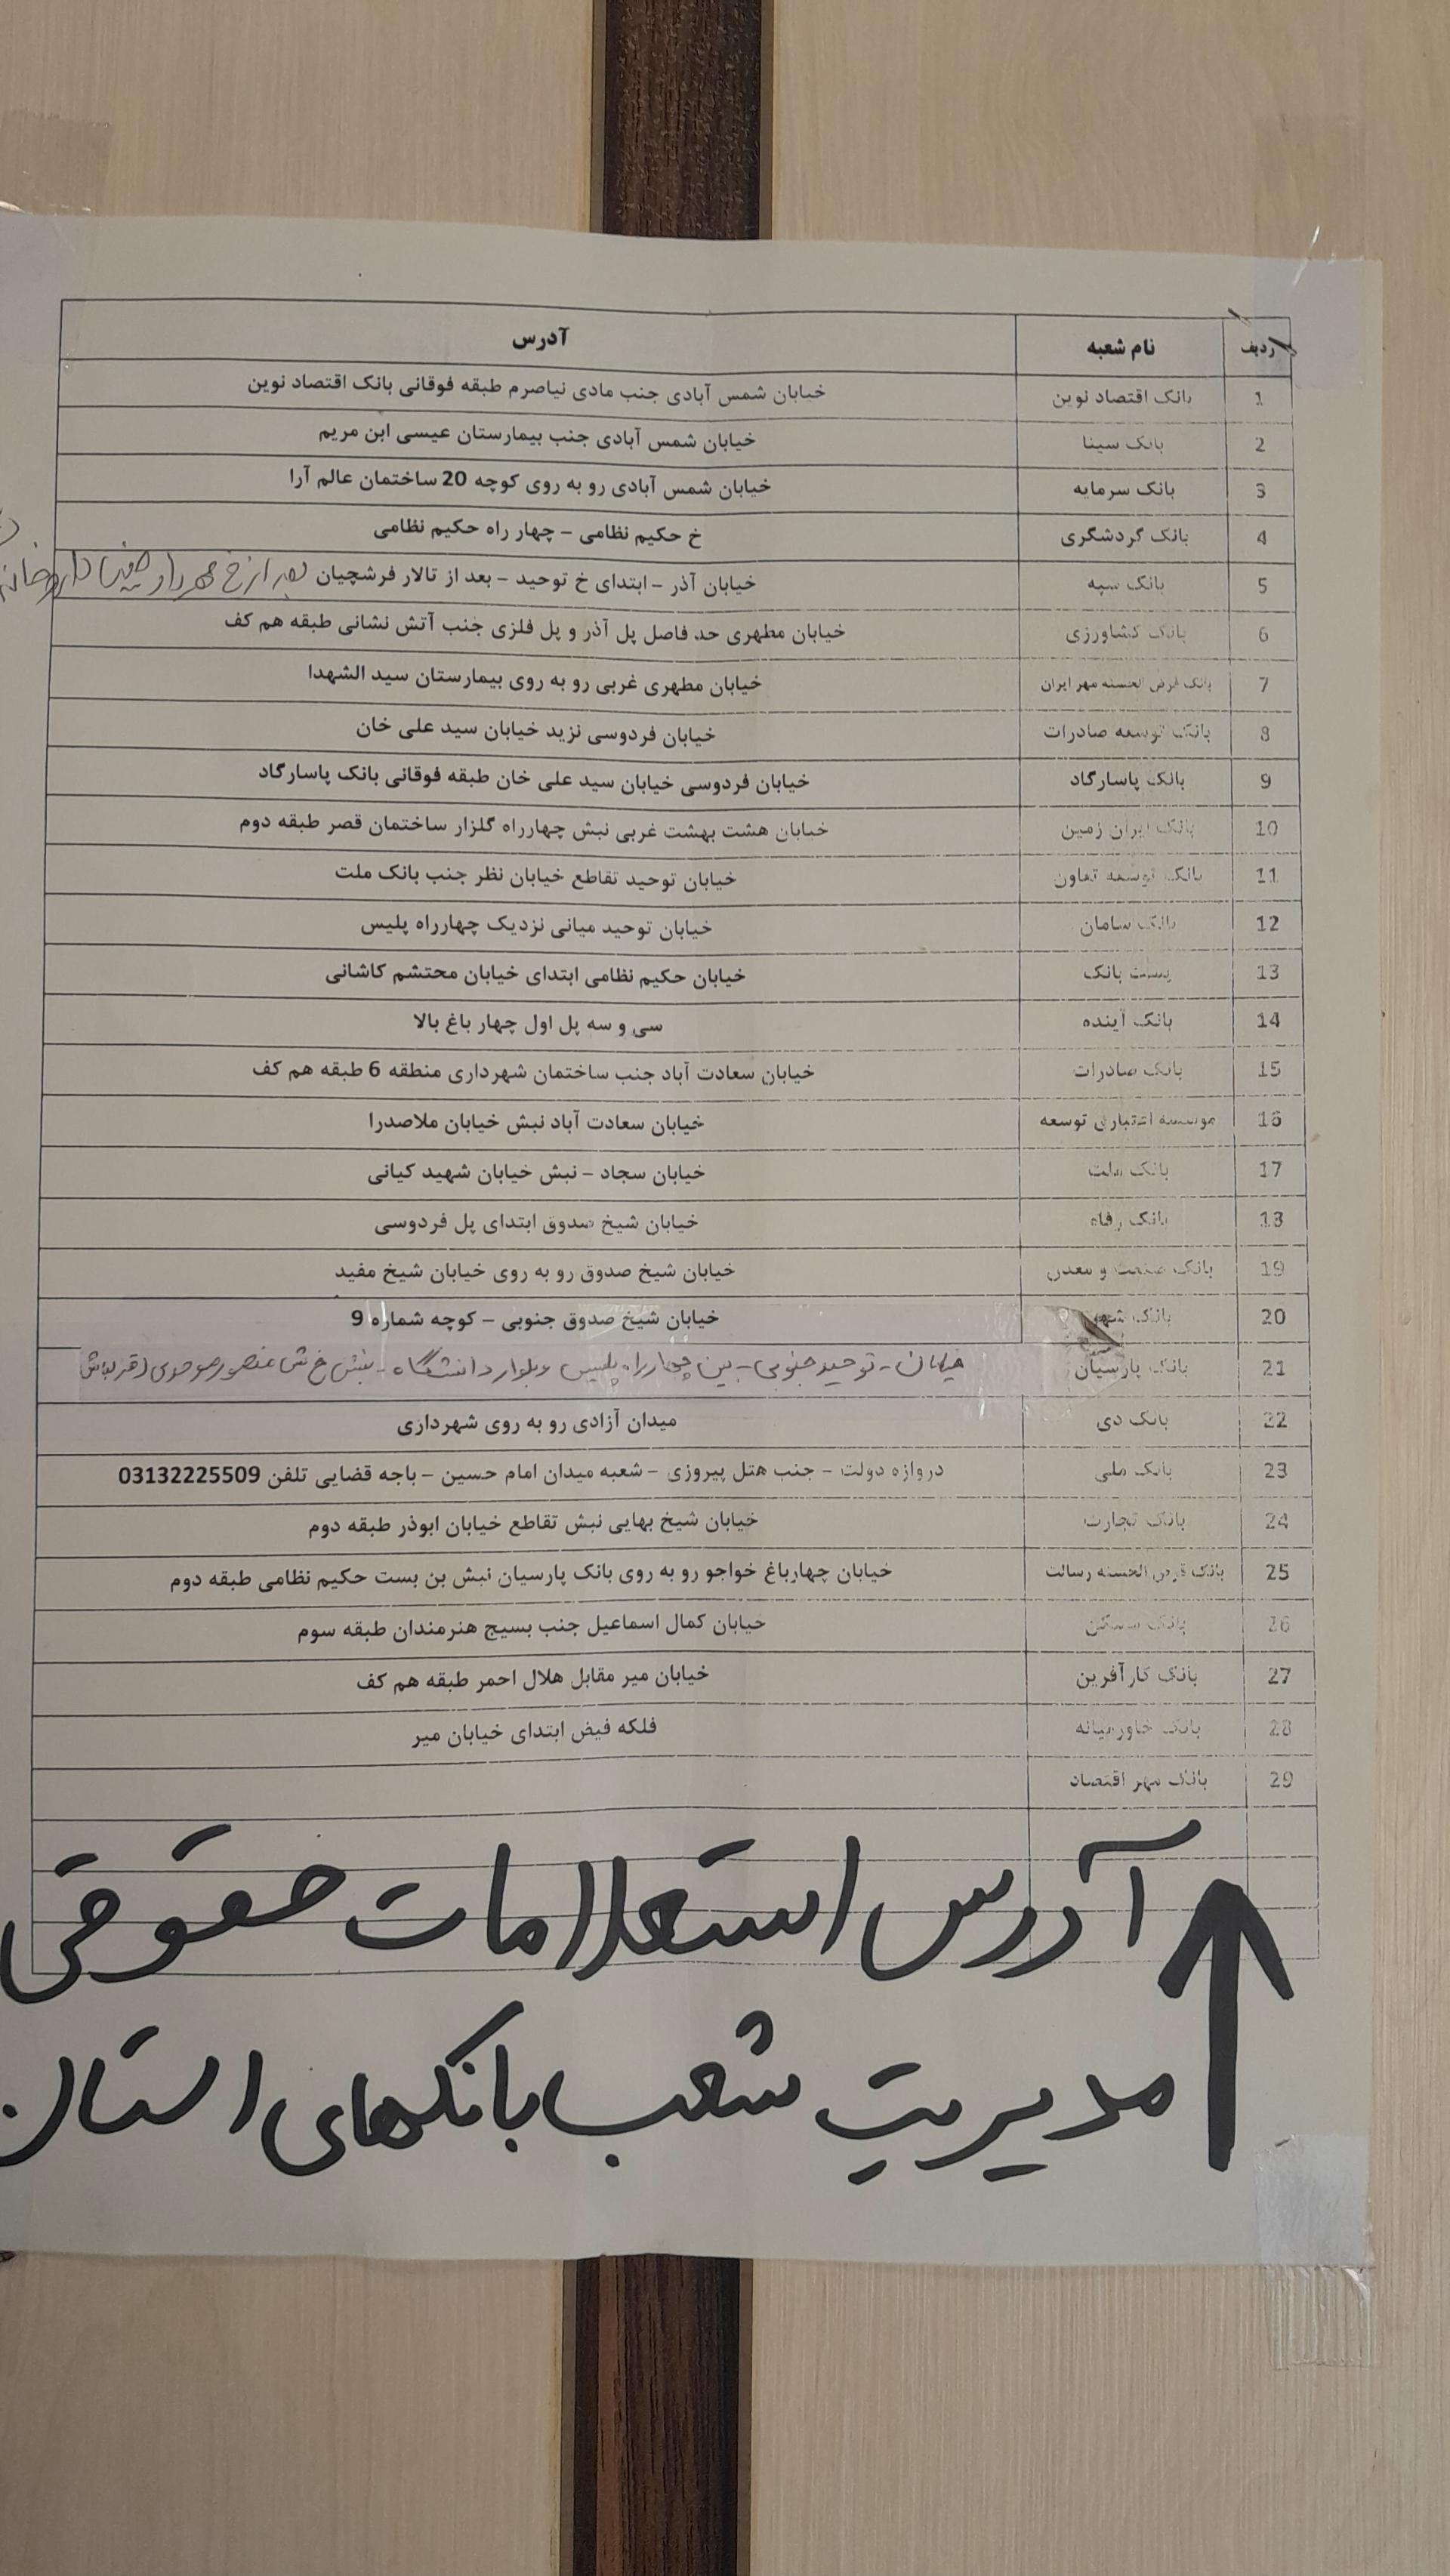 ردیف نام شعبه آدرس
1 بانک اقتصاد نوین خیابان شمس آبادی جنب مادی نیاصرم طبقه فوقانی بانک اقتصاد نوین
2 بانک سینا خیابان شمس آبادی جنب بیمارستان عیسی ابن مریم
3 بانک سرمایه خیابان شمس آبادی رو به روی کوچه 20 ساختمان عالم آرا
4 بانک گردشگری خ حکیم نظامی – چهار راه حکیم نظامی
5 بانک سپه خیابان آذر – ابتدای خ توحید – بعد از تالار فرشچیان بعد از خ مهرداد
6 بانک کشاورزی خیابان مطهری حد فاصل پل آذر و پل فلزی جنب آتش نشانی طبقه هم کف
7 بانک قرض الحسنه مهر ایران خیابان مطهری غربی رو به روی بیمارستان سید الشهدا
8 بانک توسعه صادرات خیابان فردوسی نزید خیابان سید علی خان
9 بانک پاسارگاد خیابان فردوسی خیابان سید علی خان طبقه فوقانی بانک پاسارگاد
10 بانک ایران زمین خیابان هشت بهشت غربی نبش چهارراه گلزار ساختمان قصر طبقه دوم
11 بانک توسعه تعاون خیابان توحید تقاطع خیابان نظر جنب بانک ملت
12 بانک سامان خیابان توحید میانی نزدیک چهارراه پلیس
13 پست بانک خیابان حکیم نظامی ابتدای خیابان محتشم کاشانی
14 بانک آینده سی و سه پل اول چهار باغ بالا
15 بانک صادرات خیابان سعادت آباد جنب ساختمان شهرداری منطقه 6 طبقه هم کف
16 موسسه اعتباری توسعه خیابان سعادت آباد نبش خیابان ملاصدرا
17 بانک ملت خیابان سجاد – نبش خیابان شهید کیانی
18 بانک رفاه خیابان شیخ صدوق ابتدای پل فردوسی
19 بانک صنعت و معدن خیابان شیخ صدوق رو به روی خیابان شیخ مفید
20 بانک شهر خیابان شیخ صدوق جنوبی – کوچه شماره 9
21 بانک پارسیان خیابان - توحید جنوبی - بین چهارراه پلیس و بلوار دانشگاه - نبش خ ش منصور موحدی
22 بانک دی میدان آزادی رو به روی شهرداری
23 بانک ملی دروازه دولت – جنب هتل پیروزی – شعبه میدان امام حسین – باجه قضایی تلفن 03132225509
24 بانک تجارت خیابان شیخ بهایی نبش تقاطع خیابان ابوذر طبقه دوم
25 بانک قرض الحسنه رسالت خیابان چهارباغ خواجو رو به روی بانک پارسیان نبش بن بست حکیم نظامی طبقه دوم
26 بانک مسکن خیابان کمال اسماعیل جنب بسیج هنرمندان طبقه سوم
27 بانک کارآفرین خیابان میر مقابل هلال احمر طبقه هم کف
28 بانک خاورمیانه فلکه فیض ابتدای خیابان میر
29 بانک مهر اقتصاد
آدرس استعلامات حقوقی
مدیریت شعب بانکهای استان